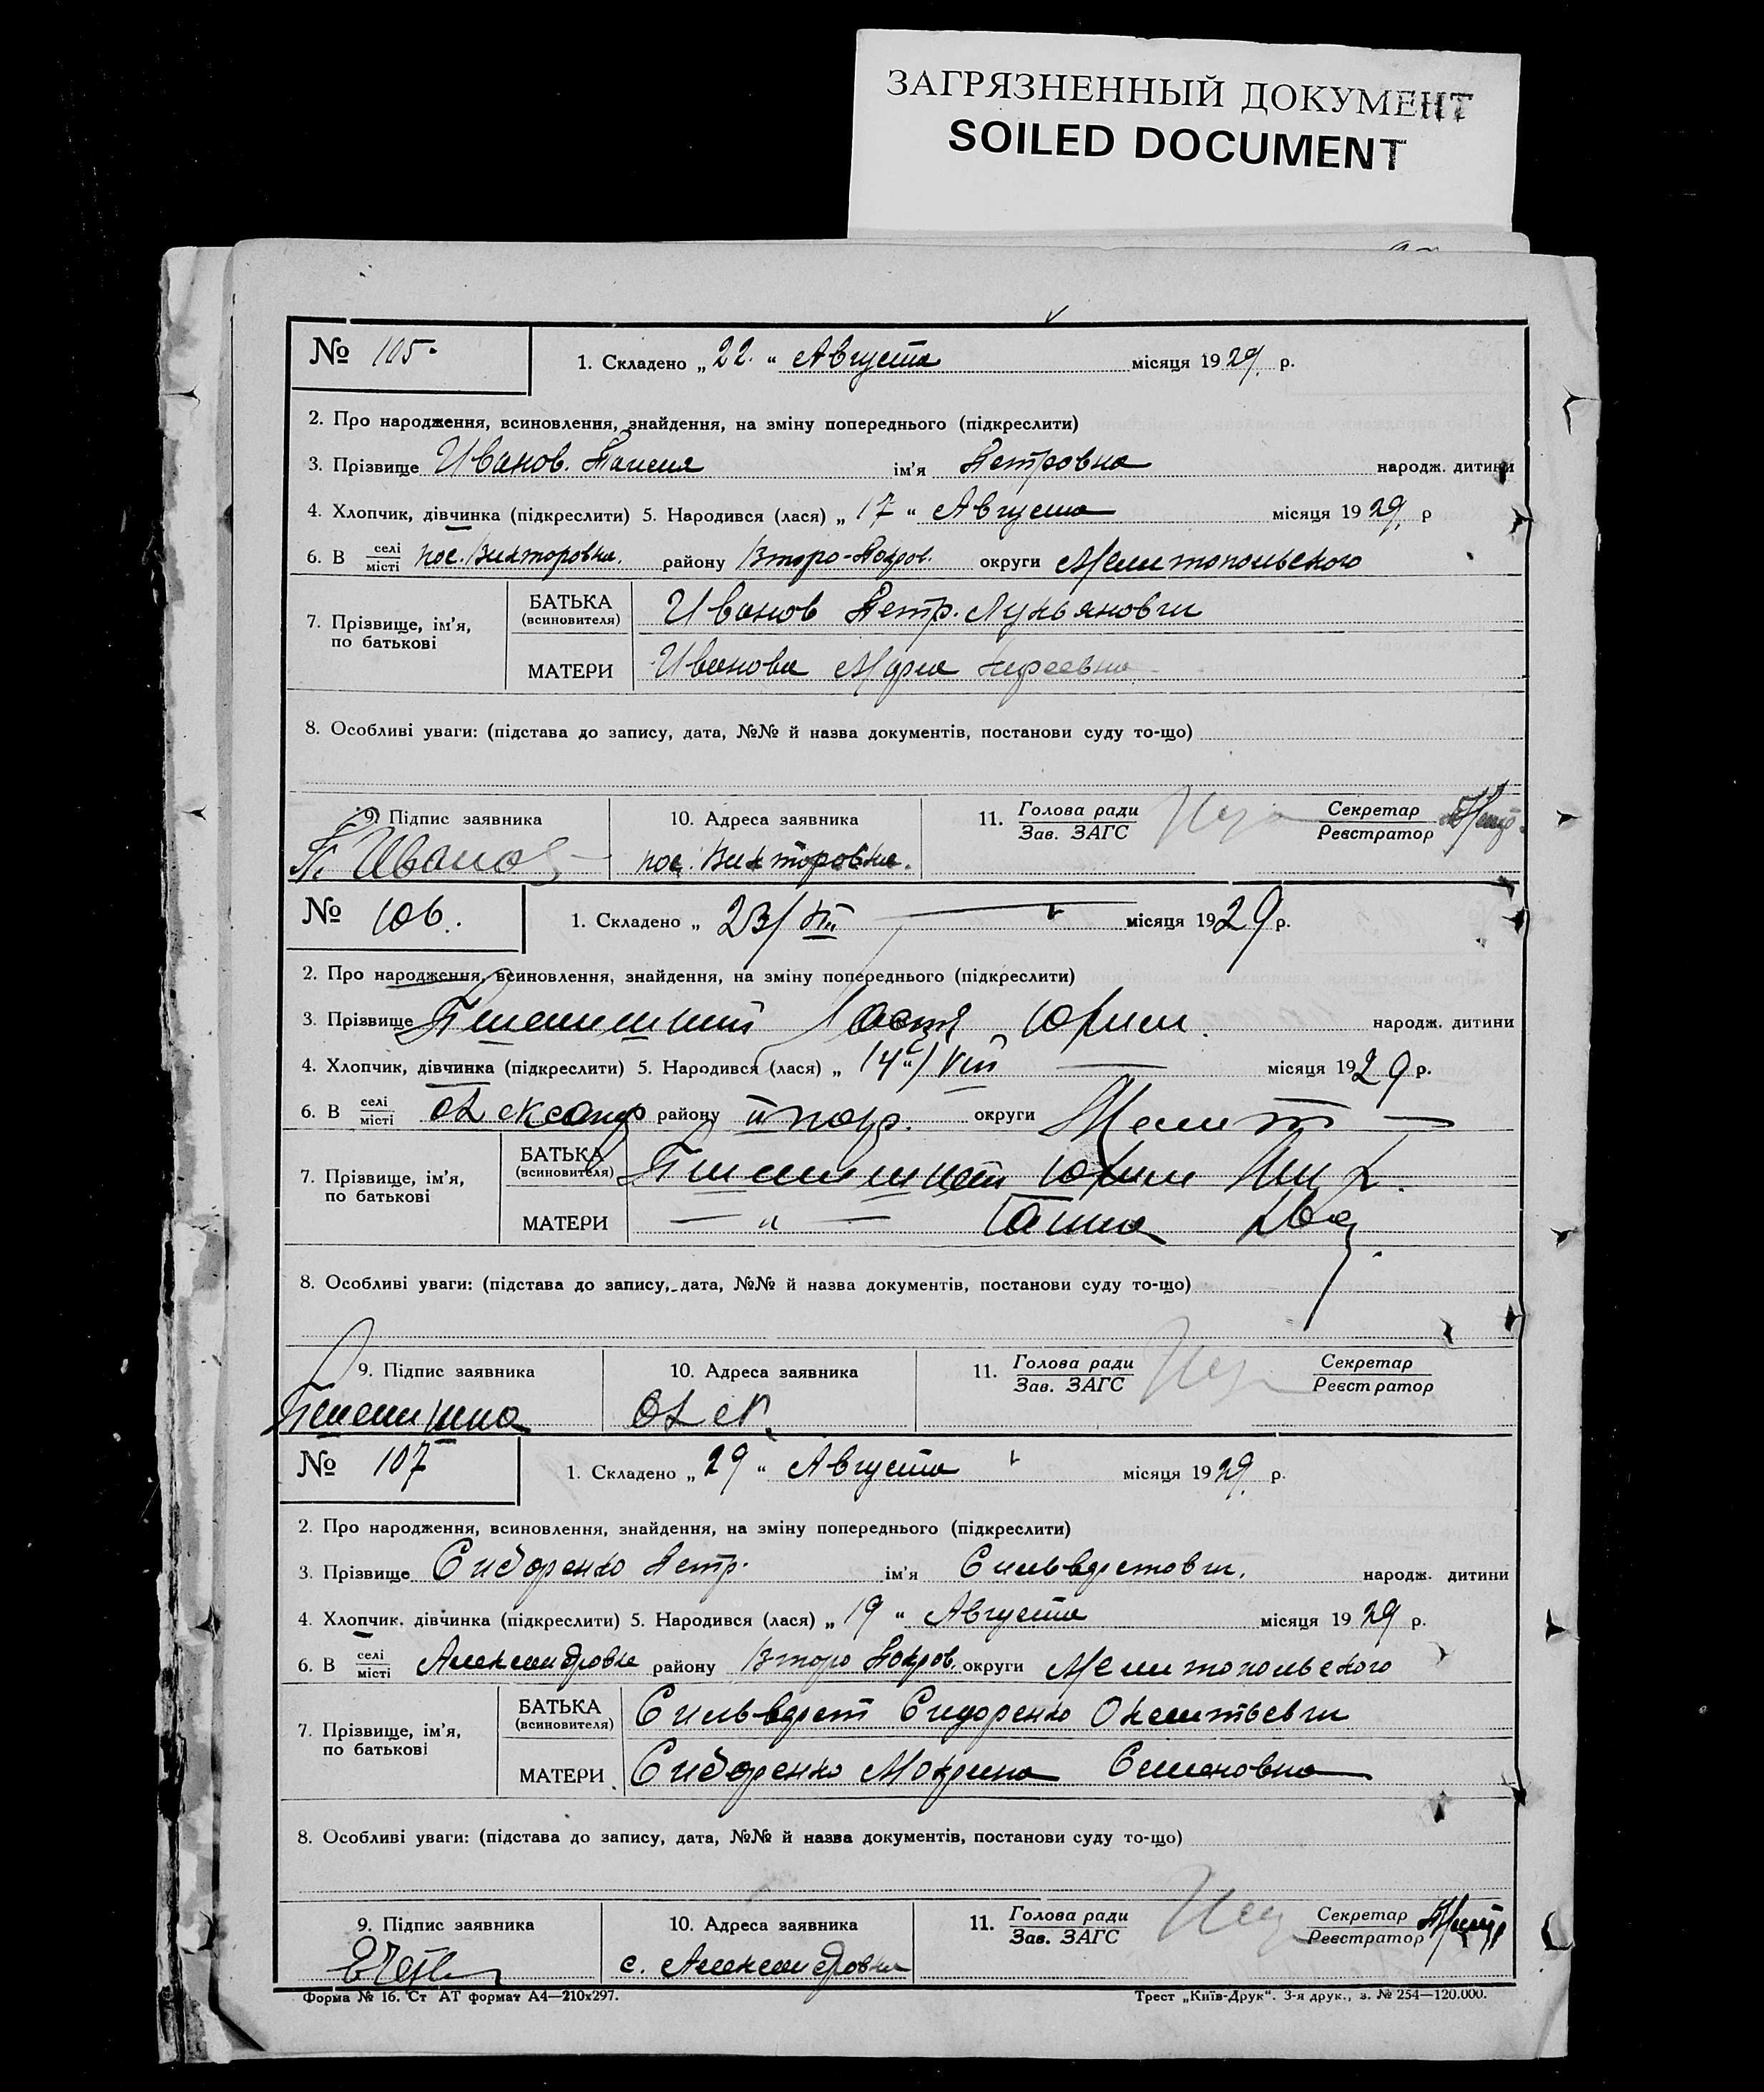 ЗАГРЯЗНЕННЫЙ ДОКУМЕНТ
SOILED DOCUMENT
№ 105. 1. Складено „ 22. “ Августа місяця 1929. р.
2. Про народження, всиновлення, знайдення, на зміну попереднього (підкреслити)
3. Прізвище Иванов. Таисия ім'я Петровна народж. дитини
4. Хлопчик, дівчинка (підкреслити) 5. Народився (лася) „ 17 “ Августа місяця 1929. р
6. В селі/місті пос. Викторовка. району Второ-Покров. округи Мелитопольского
7. Прізвище, ім'я, по батькові
БАТЬКА (всиновителя) Иванов Петр. Лукьянович
МАТЕРИ Иванова Мария
8. Особливі уваги: (підстава до запису, дата, №№ й назва документів, постанови суду то-що)
9. Підпис заявника 10. Адреса заявника 11. Голова ради/Зав. ЗАГС Секретар/Реєстратор
П. Иванов пос. Викторовка.
№ 106. 1. Складено „ 23/VIII місяця 1929 р.
2. Про народження, всиновлення, знайдення, на зміну попереднього (підкреслити)
3. Прізвище народж. дитини
4. Хлопчик, дівчинка (підкреслити) 5. Народився (лася) „ 14 “/VIII місяця 1929 р.
6. В селі/місті Олександр району II покр. округи Мелит
7. Прізвище, ім'я, по батькові
БАТЬКА (всиновителя)
МАТЕРИ — „ — Ганна
8. Особливі уваги: (підстава до запису, дата, №№ й назва документів, постанови суду то-що)
9. Підпис заявника 10. Адреса заявника 11. Голова ради/Зав. ЗАГС Секретар/Реєстратор
Олек.
№ 107 1. Складено „ 29 “ Августа місяця 1929. р.
2. Про народження, всиновлення, знайдення, на зміну попереднього (підкреслити)
3. Прізвище Сидоренко Петр. ім'я Сильверстович. народж. дитини
4. Хлопчик. дівчинка (підкреслити) 5. Народився (лася) „ 19 “ Августа місяця 1929 р.
6. В селі/місті Александровка району Второ Покров. округи Мелитопольского
7. Прізвище, ім'я, по батькові
БАТЬКА (всиновителя) Сильверст Сидоренко
МАТЕРИ Сидоренко Мокрина Семеновна
8. Особливі уваги: (підстава до запису, дата, №№ й назва документів, постанови суду то-що)
9. Підпис заявника 10. Адреса заявника 11. Голова ради/Зав. ЗАГС Секретар/Реєстратор
с. Александровка
Форма № 16. Ст АТ формат А4—210х297. Трест „Київ-Друк“. 3-я друк., з. № 254—120.000.